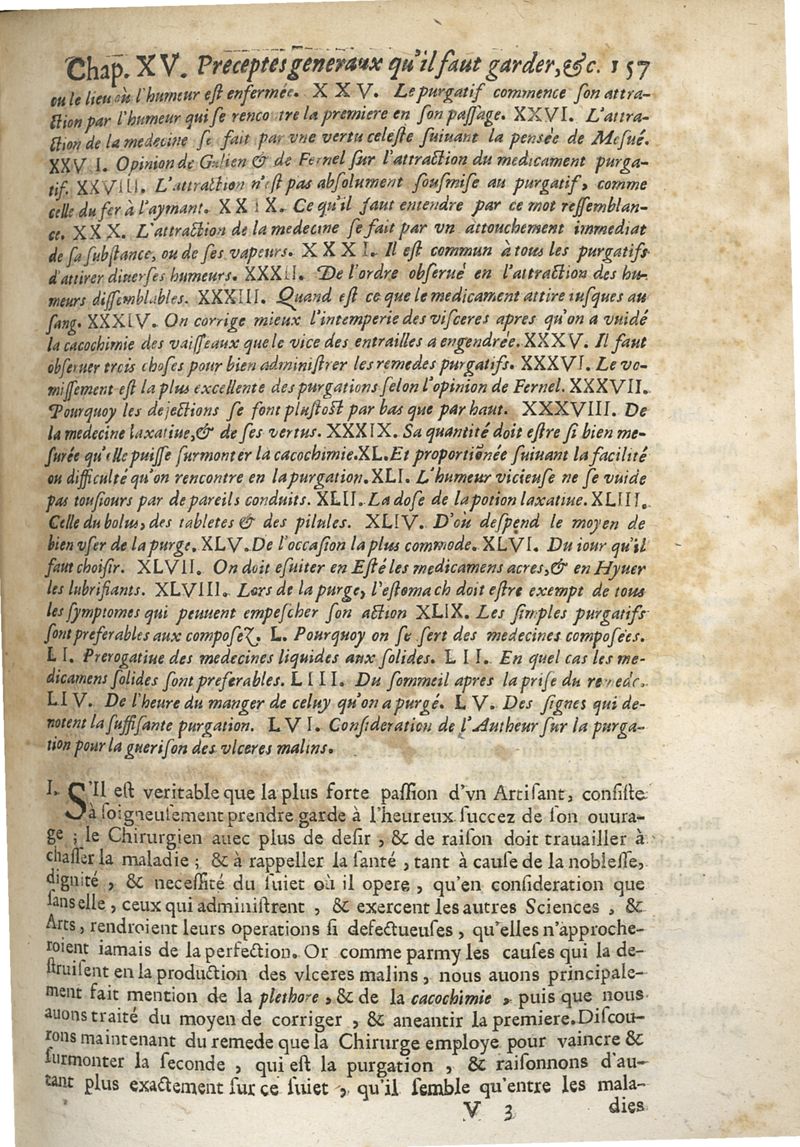 Chap. XV. Preceptes generaux qu'il faut garder, &c. 157
ou le lieu où l'humeur est enfermée. XXV. Le purgatif commence son attra-
ction par l'humeur qui se rencontre la premiere en son passage. XXVI. L'attra-
ction de la medecine se fait par vne vertu celeste suiuant la pensée de Mesué.
XXVI. Opinion de Galien & de Fernel sur l'attraction du medicament purga-
tif. XXVIII. L'attraction n'est pas absolument sousmise au purgatif, comme
celle du fer à l'aymant. XXIX. Ce qu'il faut entendre par ce mot ressemblan-
ce. XXX. L'attraction de la medecine se fait par vn attouchement immediat
de sa substance, ou de ses vapeurs. XXXI. Il est commun à tous les purgatifs
d'attirer diuerses humeurs. XXXII. De l'ordre obserué en l'attraction des hu-
meurs dissemblables. XXXIII. Quand est ce que le medicament attire iusques au
sang. XXXIV. On corrige mieux l'intemperie des visceres apres qu'on a vuidé
la cacochimie des vaisseaux que le vice des entrailles a engendrée. XXXV. Il faut
obseruer trois choses pour bien administrer les remedes purgatifs. XXXVI. Le vo-
missement est la plus excellente des purgations selon l'opinion de Fernel. XXXVII.
Pourquoy les dejections se font plustost par bas que par haut. XXXVIII. De
la medecine laxatiue, & de ses vertus. XXXIX. Sa quantité doit estre si bien me-
surée qu'elle puisse surmonter la cacochimie. XL. Et proportiõnée suiuant la facilité
ou difficulté qu'on rencontre en la purgation. XLI. L'humeur vicieuse ne se vuide
pas tousiours par de pareils conduits. XLII. La dose de la potion laxatiue. XLIII.
Celle du bolus, des tabletes & des pilules. XLIV. D'où despend le moyen de
bien vser de la purge. XLV. De l'occasion la plus commode. XLVI. Du iour qu'il
faut choisir. XLVII. On doit esuiter en Esté les medicamens acres, & en Hyuer
les lubrifiants. XLVIII. Lors de la purge, l'estomach doit estre exempt de tous
les symptomes qui peuuent empescher son action XLIX. Les simples purgatifs
sont preferables aux composez. L. Pourquoy on se sert des medecines composées.
LI. Prerogatiue des medecines liquides aux solides. LII. En quel cas les me-
dicamens solides sont preferables. LIII. Du sommeil apres la prise du remede.
LIV. De l'heure du manger de celuy qu'on a purgé. LV. Des signes qui de-
notent la suffisante purgation. LVI. Consideration de l'Autheur sur la purga-
tion pour la guerison des vlceres malins.
I. S'Il est veritable que la plus forte passion d'vn Artisant, consiste
à soigneusement prendre garde à l'heureux succez de son ouura-
ge ; le Chirurgien auec plus de desir, & de raison doit trauailler à
chasser la maladie ; & à rappeller la santé, tant à cause de la noblesse,
dignité, & necessité du suiet où il opere, qu'en consideration que
sans elle, ceux qui administrent, & exercent les autres Sciences, &
Arts, rendroient leurs operations si defectueuses, qu'elles n'approche-
roient iamais de la perfection. Or comme parmy les causes qui la de-
struisent en la production des vlceres malins, nous auons principale-
ment fait mention de la plethore, & de la cacochimie, puis que nous
auons traité du moyen de corriger, & aneantir la premiere. Discou-
rons maintenant du remede que la Chirurge employe pour vaincre &
surmonter la seconde, qui est la purgation, & raisonnons d'au-
tant plus exactement sur ce suiet, qu'il semble qu'entre les mala-
V 3 dies